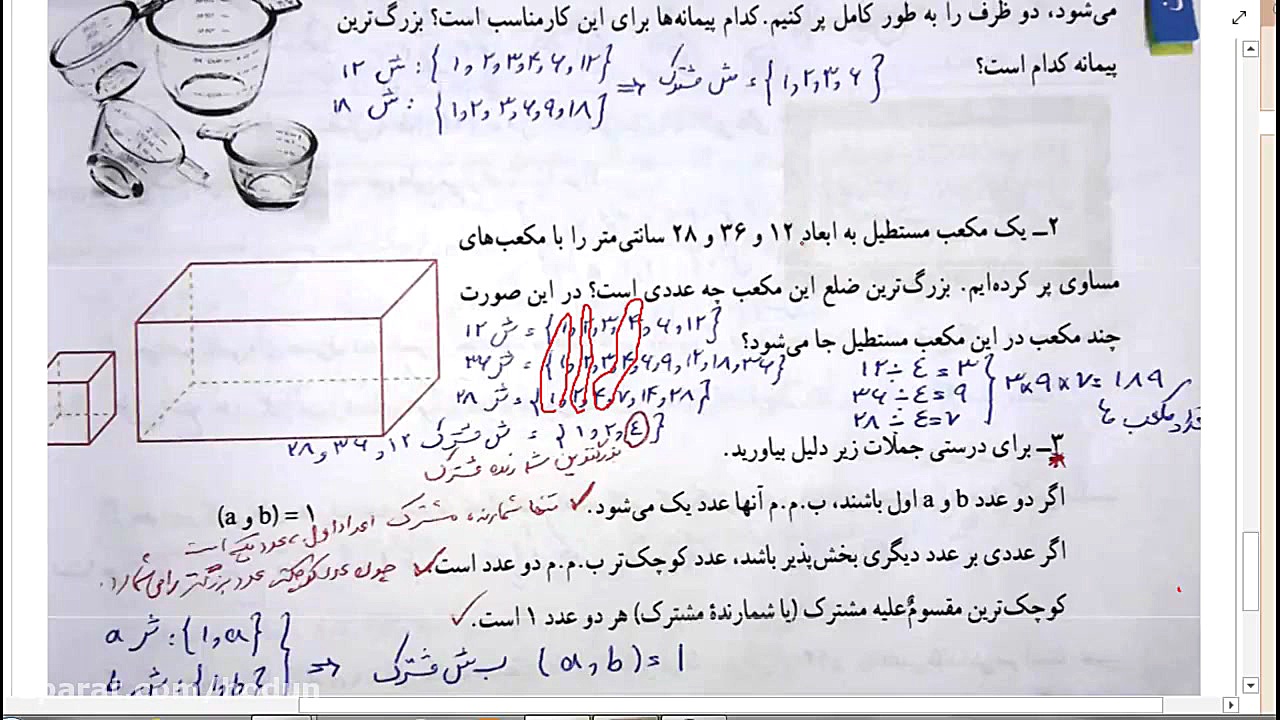 می‌شود، دو ظرف را به طور کامل پر کنیم. کدام پیمانه‌ها برای این کار مناسب است؟ بزرگ‌ترین
پیمانه کدام است؟
ش ۱۲ : {۱, ۲, ۳, ۴, ۶, ۱۲}
ش ۱۸ : {۱, ۲, ۳, ۶, ۹, ۱۸}
⇒ ش مشترک = {۱, ۲, ۳, ۶}
۲ــ یک مکعب مستطیل به ابعاد ۱۲ و ۳۶ و ۲۸ سانتی‌متر را با مکعب‌های
مساوی پر کرده‌ایم. بزرگ‌ترین ضلع این مکعب چه عددی است؟ در این صورت
چند مکعب در این مکعب مستطیل جا می‌شود؟
ش ۱۲ = {۱, ۲, ۳, ۴, ۶, ۱۲}
ش ۳۶ = {۱, ۲, ۳, ۴, ۶, ۹, ۱۲, ۱۸, ۳۶}
ش ۲۸ = {۱, ۲, ۴, ۷, ۱۴, ۲۸}
ش مشترک ۱۲ و ۳۶ و ۲۸ = {۱, ۲, ٤}
بزرگترین شمارنده مشترک
۱۲ ÷ ٤ = ۳
۳۶ ÷ ٤ = ۹
۲۸ ÷ ٤ = ۷
۳ × ۹ × ۷ = ۱۸۹
مکعب ها
۳ــ برای درستی جملات زیر دلیل بیاورید.
اگر دو عدد a و b اول باشند، ب.م.م آنها عدد یک می‌شود. (a و b) = ۱
تنها شمارنده مشترک اعداد اول، عدد یک است
اگر عددی بر عدد دیگری بخش‌پذیر باشد، عدد کوچک‌تر ب.م.م دو عدد است.
چون عدد کوچکتر عدد بزرگتر را می شمارد.
کوچک‌ترین مقسومٌ‌علیه مشترک (یا شمارندهٔ مشترک) هر دو عدد ۱ است.
ش a : {۱, a}
ش b : {۱, b}
⇒ ب ش مشترک (a, b) = ۱